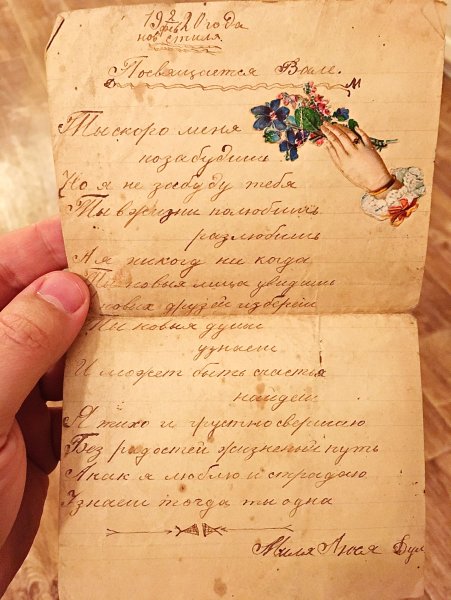 19 2/фев 20 года
нов стиля
Посвящается Вале.
Ты скоро меня
позабудишь
Но я не забуду тебя
Ты в жизни полюбишь
разлюбишь
А я никогд никогда
Ты новыя лица увидишь
новых друзей изберёш
Ты новыя души
узнаеш
И может быть счастья
найдёш
Я тихо и грустно свершаю
Без радостей жизненый путь
А как я люблю и страдаю
Узнаеш тогда ты одна
Миля Люся